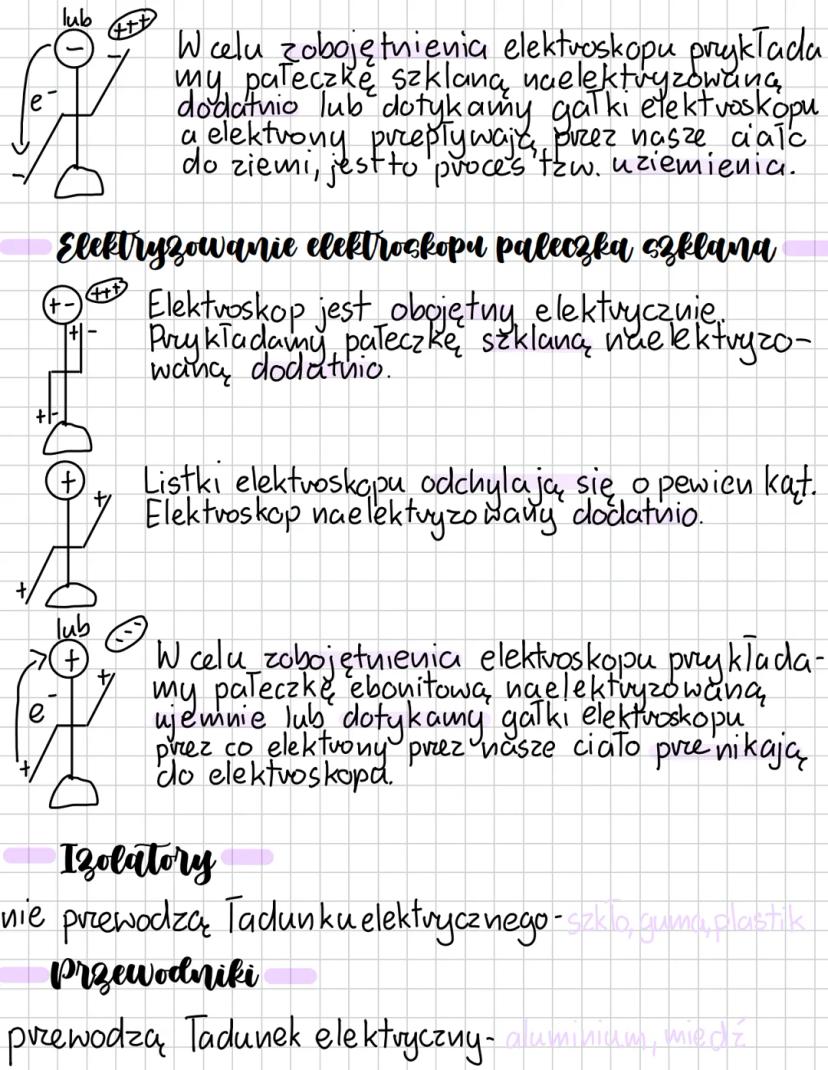 lub
+++
−
−
e⁻
−
W celu zobojętnienia elektroskopu przykłada
my pałeczkę szklaną naelektryzowaną
dodatnio lub dotykamy gałki elektroskopu
a elektrony przepływają przez nasze ciało
do ziemi, jest to proces tzw. uziemienia.
Elektryzowanie elektroskopu pałeczka szklana
+-
+++
+ -
+ -
Elektroskop jest obojętny elektrycznie.
Przykładamy pałeczkę szklaną naelektryzo-
waną dodatnio.
+
+
+
Listki elektroskopu odchylają się o pewien kąt.
Elektroskop naelektryzowany dodatnio.
lub
---
+
+
e⁻
+
W celu zobojętnienia elektroskopu przykłada-
my pałeczkę ebonitową naelektryzowaną
ujemnie lub dotykamy gałki elektroskopu
przez co elektrony przez nasze ciało przenikają
do elektroskopa.
Izolatory
nie przewodzą ładunku elektrycznego - szkło, guma, plastik
Przewodniki
przewodzą ładunek elektryczny - aluminium, miedź